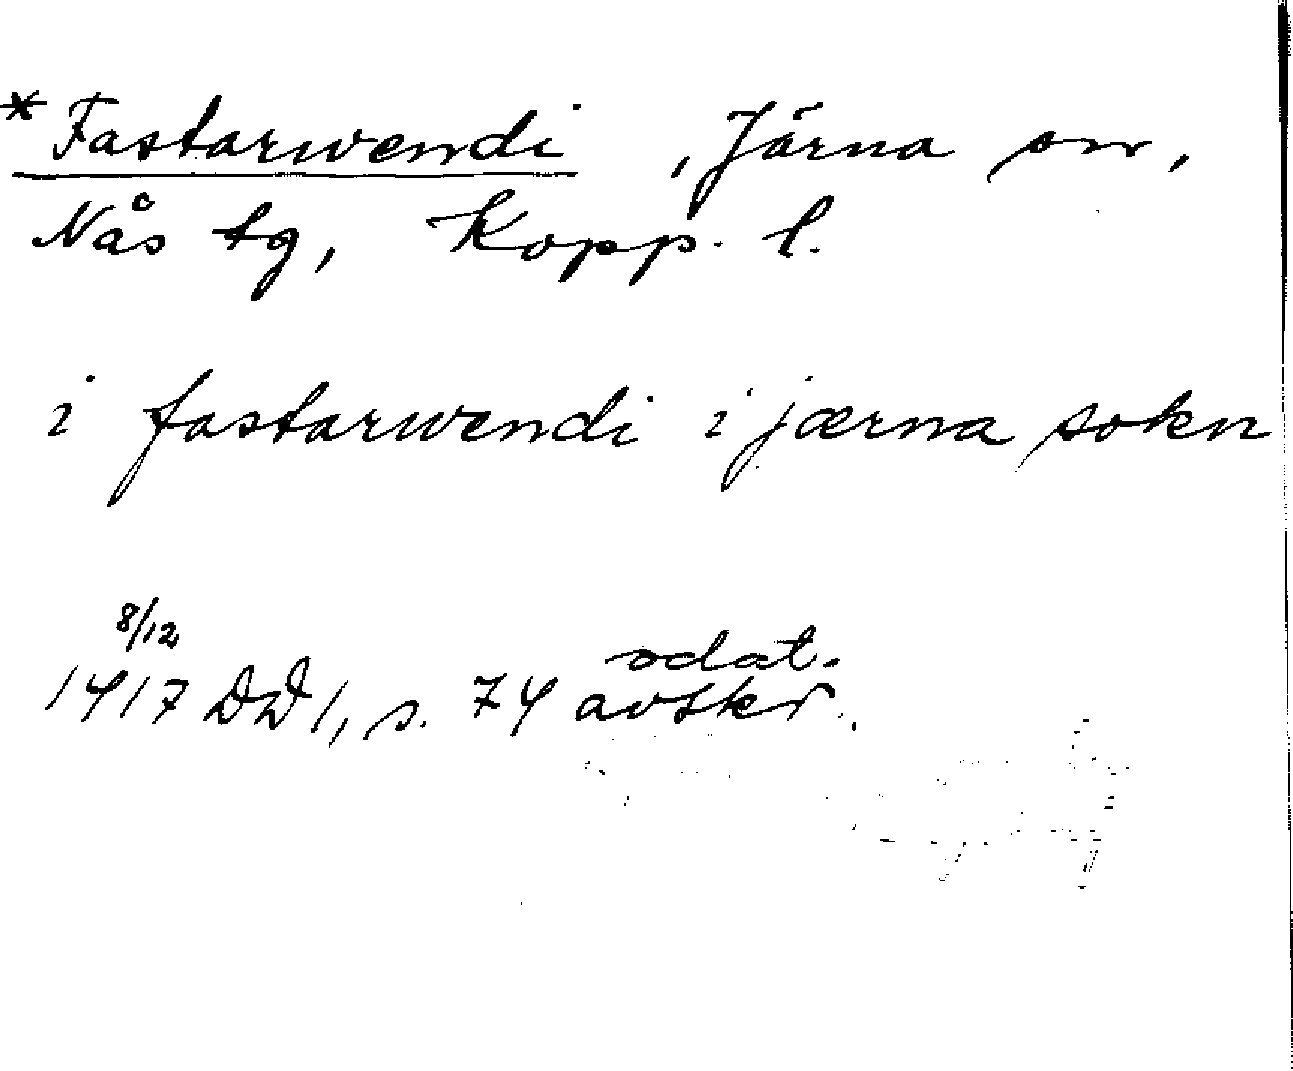 *Fastarwendi, Järna sn,
Nås tg, Kopp. l.
i fastarwendi i jærna sokn
8/12
1417 DD 1, s. 74 odat. avskr.